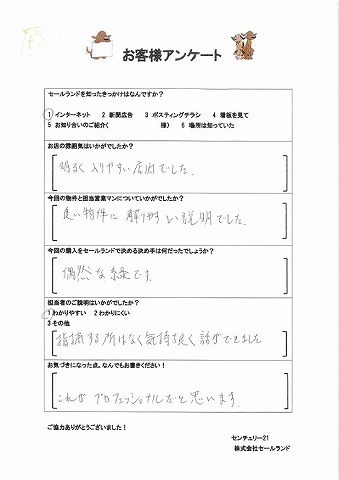 お客様アンケート
セールランドを知ったきっかけはなんですか？
1 インターネット　2 新聞広告　3 ポスティングチラシ　4 看板を見て
5 お知り合いのご紹介（　　　　様）　6 場所は知っていた
お店の雰囲気はいかがでしたか？
明るく入りやすい店内でした。
今回の物件と担当営業マンについていかがでしたか？
良い物件に解りやすい説明でした。
今回の購入をセールランドで決める決め手は何だったでしょうか？
偶然な縁です。
担当者のご説明はいかがでしたか？
1 わかりやすい　2 わかりにくい
3 その他
指摘する所はなく気持ち良く話ができました
お気づきになった点。なんでもお書きください！
これがプロフェッショナルだと思います。
ご協力ありがとうございました！
センチュリー21
株式会社セールランド